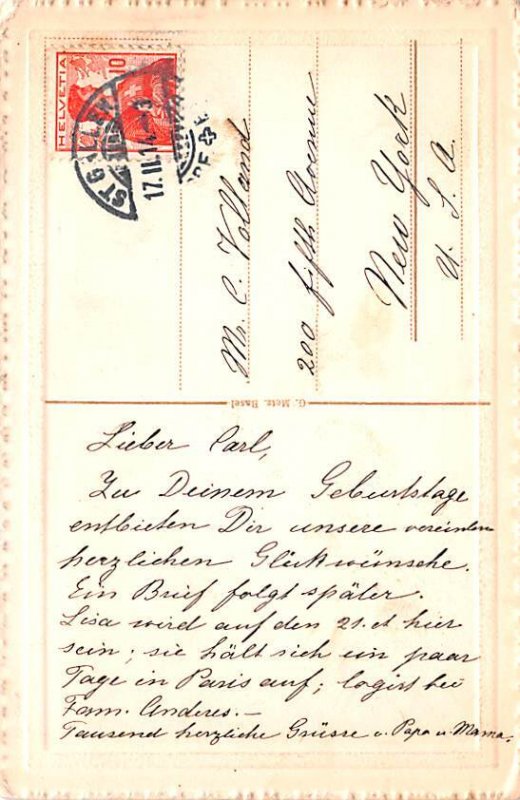 HELVETIA
10
ST. GALLEN
17.II.14
Mr. C. Volland
200 fifth Avenue
New York
U. S. A.
G. Metz, Basel
Lieber Carl,
Zu Deinem Geburtstage
entbieten Dir unsere vereinten
herzlichen Glückwünsche.
Ein Brief folgt später.
Lisa wird auf den 21. ct hier
sein; sie hält sich ein paar
Tage in Paris auf; logirt bei
Fam. Anderes. —
Tausend herzliche Grüsse v. Papa u. Mama.